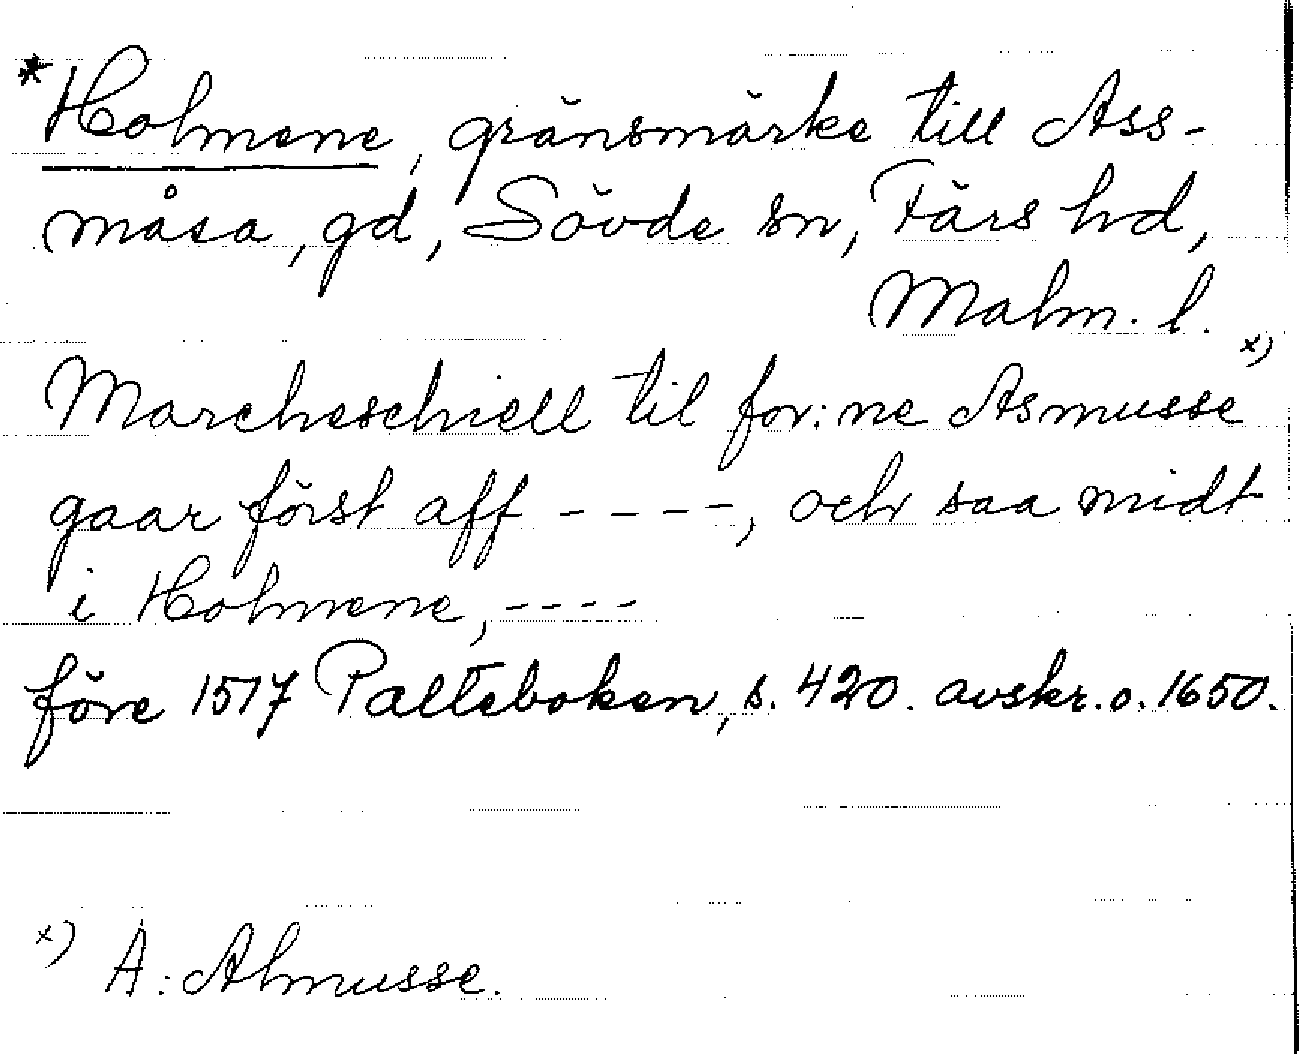 *Holmene, gränsmärke till Ass-
måsa, gd, Sövde sn, Färs hd,
Malm. l.
Marcheschiell til for:ne Asmusse x)
gaar först aff ----, och saa midt
i Holmene, ----
före 1517 Palteboken, s. 420. avskr. o. 1650.
x) A: Almusse.